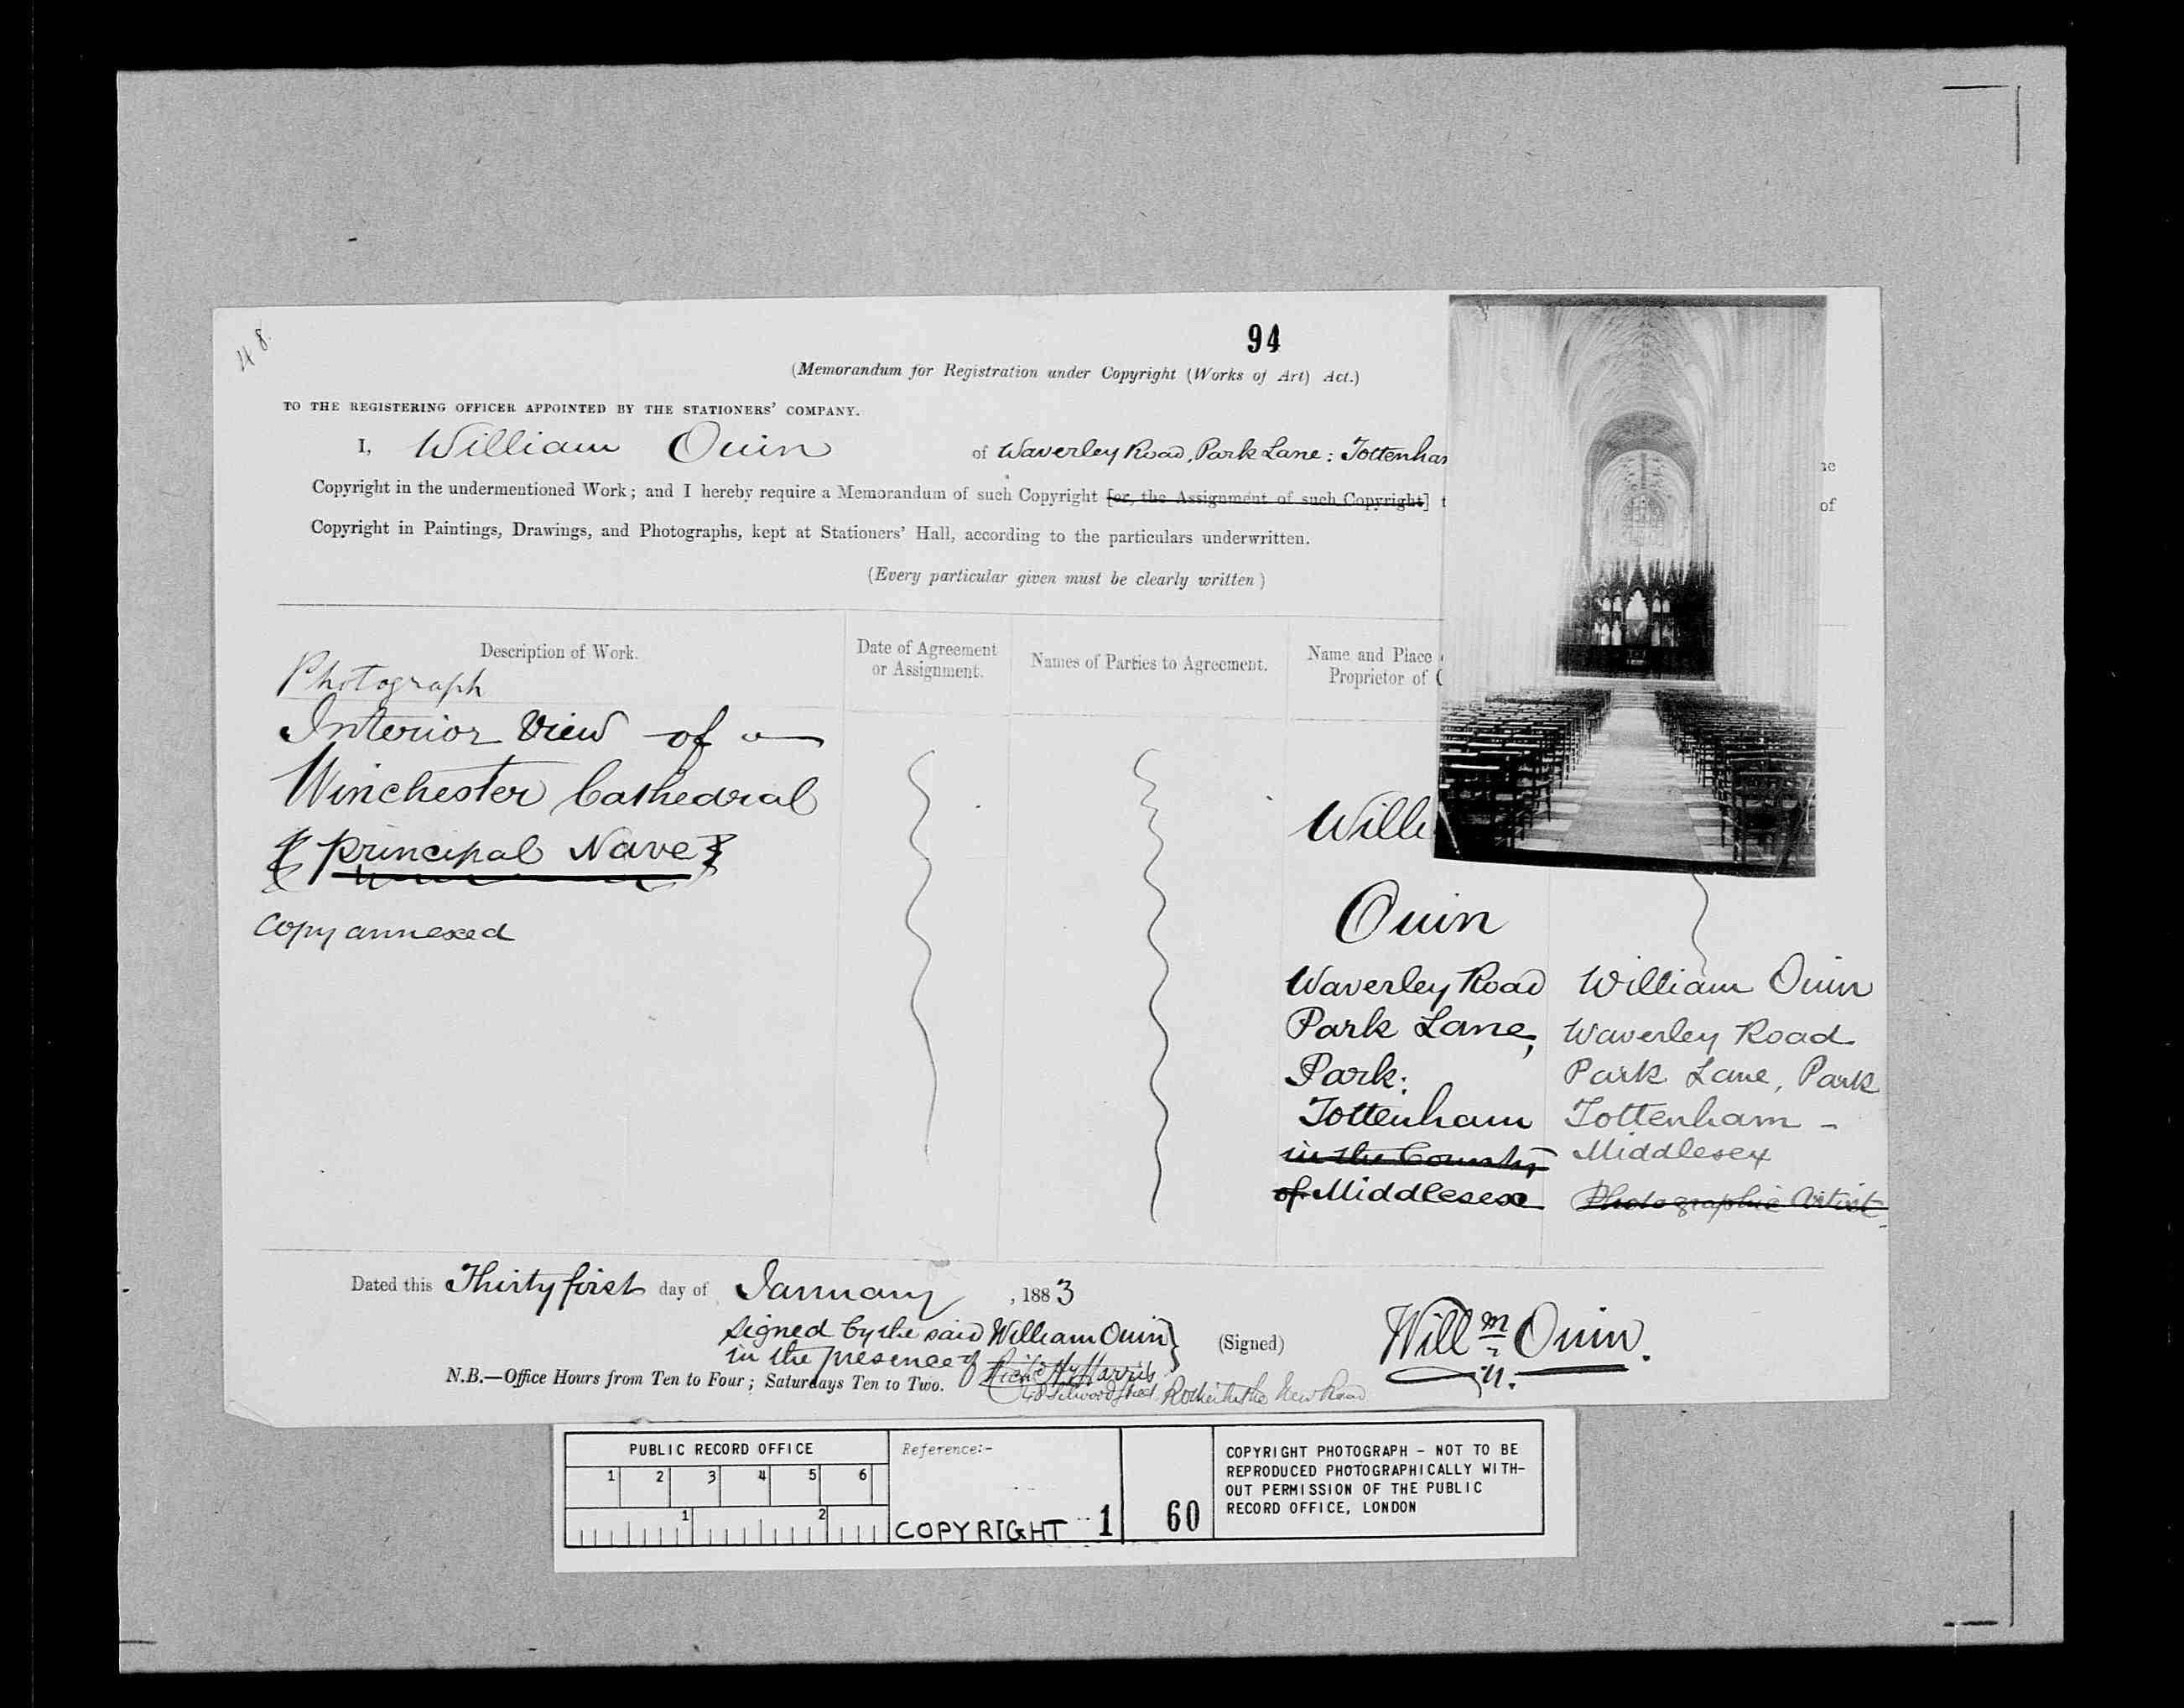 48.
94
(Memorandum for Registration under Copyright (Works of Art) Act.)
TO THE REGISTERING OFFICER APPOINTED BY THE STATIONERS' COMPANY.
I, William Quin of Waverley Road, Park Lane: Tottenham
Copyright in the undermentioned Work; and I hereby require a Memorandum of such Copyright [or, the Assignment of such Copyright] t
Copyright in Paintings, Drawings, and Photographs, kept at Stationers' Hall, according to the particulars underwritten.
(Every particular given must be clearly written)
Description of Work.
Date of Agreement
or Assignment.
Names of Parties to Agreement.
Name and Place
Proprietor of
Photograph
Interior View of
Winchester Cathedral
Principal Nave
Copy annexed
Willi
Quin
Waverley Road
Park Lane,
Park:
Tottenham
in the County
of Middlesex
William Quin
Waverley Road
Park Lane, Park
Tottenham -
Middlesex
Photographic Artist
Dated this Thirty first day of January, 1883
Signed by the said William Quin
in the presence of Richd Hy Harris
(Signed) Willm Quin.
N.B.—Office Hours from Ten to Four; Saturdays Ten to Two.
Rotherhithe New Road
PUBLIC RECORD OFFICE
1 2 3 4 5 6
1 2
Reference:-
COPYRIGHT 1 60
COPYRIGHT PHOTOGRAPH - NOT TO BE
REPRODUCED PHOTOGRAPHICALLY WITH-
OUT PERMISSION OF THE PUBLIC
RECORD OFFICE, LONDON